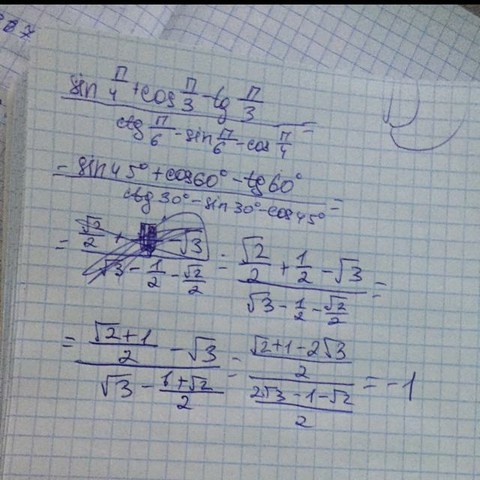 287
(sin π/4 + cos π/3 - tg π/3) / (ctg π/6 - sin π/6 - cos π/4) =
= (sin45° + cos60° - tg60°) / (ctg30° - sin30° - cos45°) =
= (√2/2 + - √3) / (√3 - 1/2 - √2/2) = (√2/2 + 1/2 - √3) / (√3 - 1/2 - √2/2) =
= ((√2+1)/2 - √3) / (√3 - (1+√2)/2) = ((√2+1-2√3)/2) / ((2√3-1-√2)/2) = -1